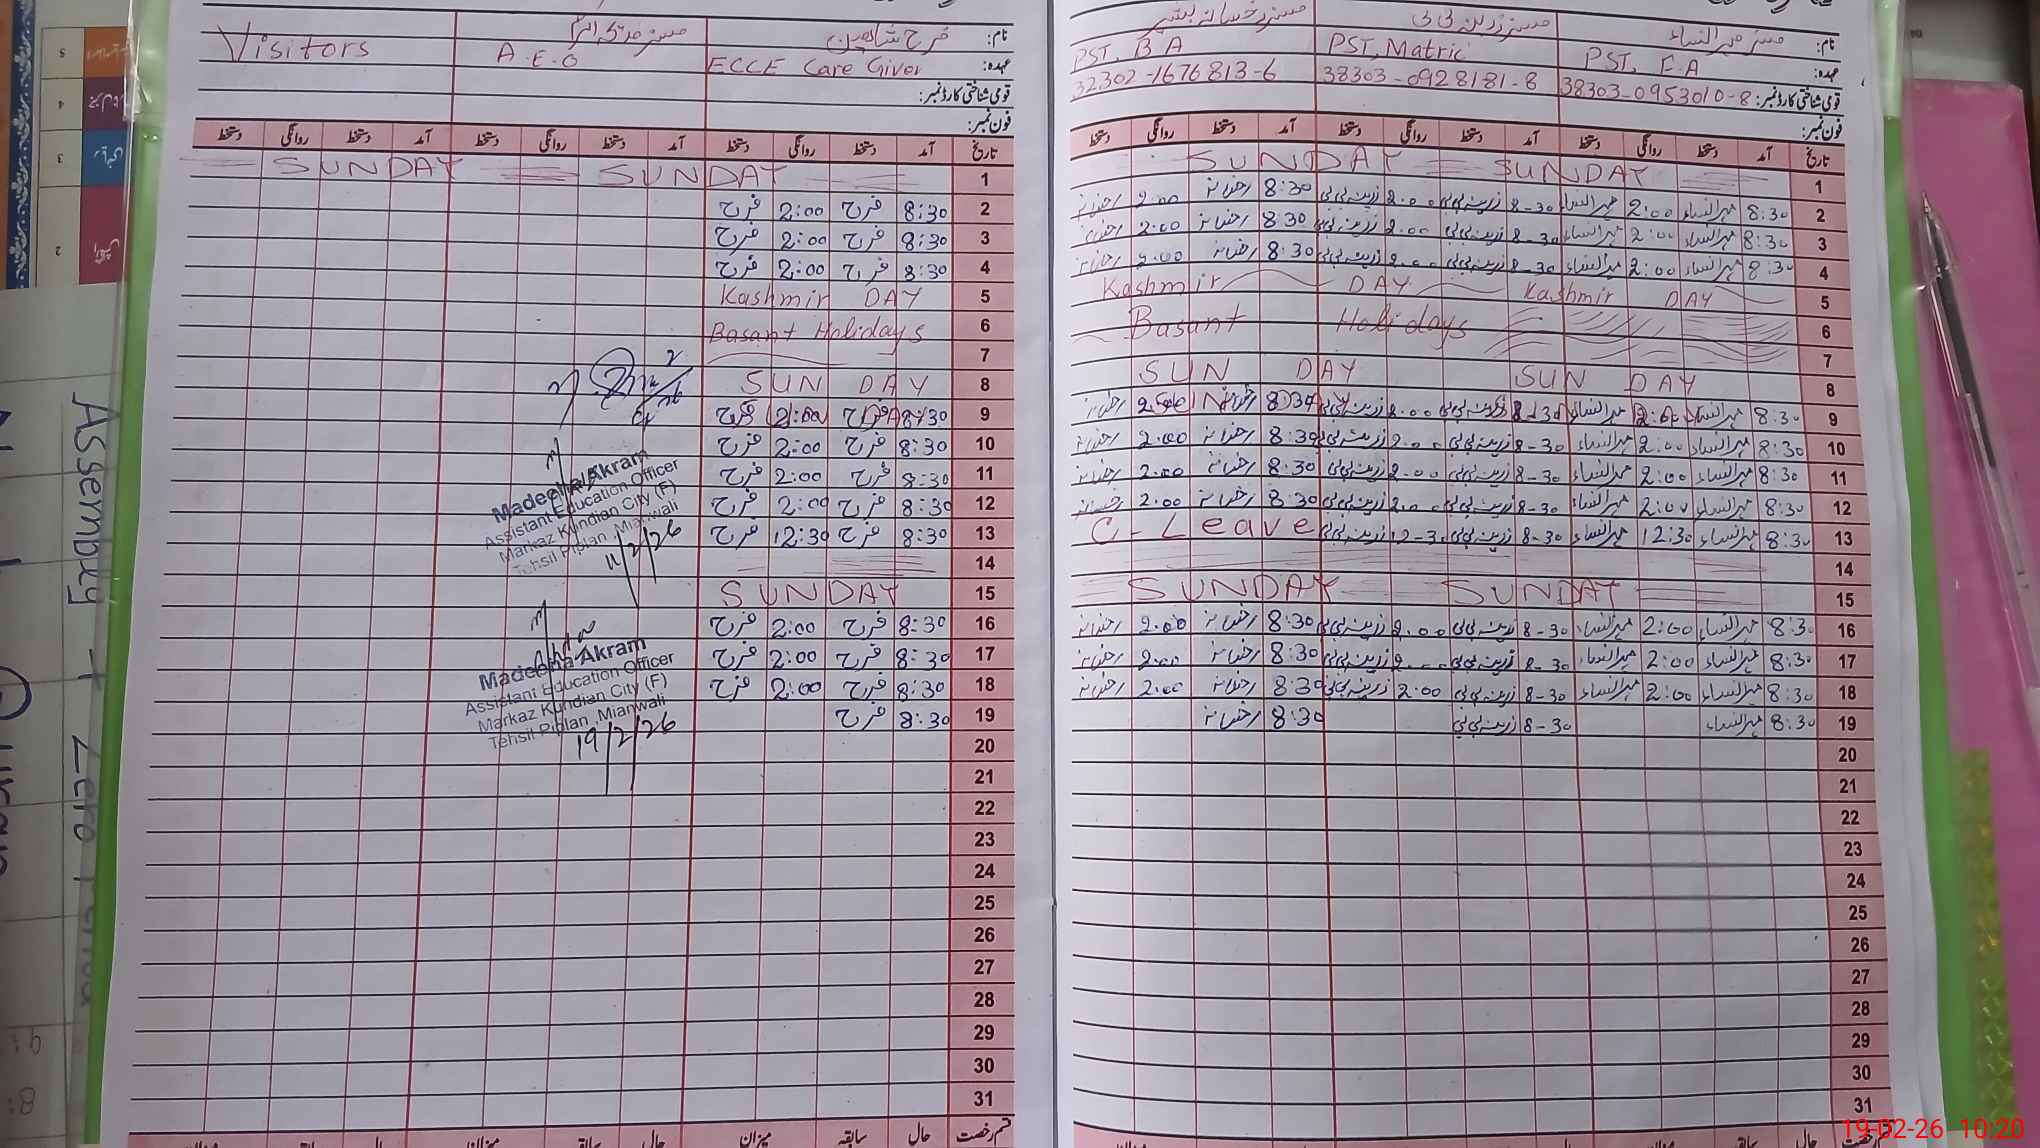 Visitors
A.E.O
فرح شاہین
نام:
ECCE Care Giver
عہدہ:
قومی شناختی کارڈ نمبر:
فون نمبر:
دستخط روانگی دستخط آمد دستخط روانگی دستخط آمد دستخط روانگی دستخط آمد تاریخ
SUNDAY SUNDAY 1
فرح 2:00 فرح 8:30 2
فرح 2:00 فرح 8:30 3
فرح 2:00 فرح 8:30 4
Kashmir DAY 5
Basant Holidays 6
7
SUN DAY 8
فرح 2:00 فرح 8:30 9
فرح 2:00 فرح 8:30 10
فرح 2:00 فرح 8:30 11
فرح 2:00 فرح 8:30 12
فرح 12:30 فرح 8:30 13
14
SUNDAY 15
فرح 2:00 فرح 8:30 16
فرح 2:00 فرح 8:30 17
فرح 2:00 فرح 8:30 18
فرح 8:30 19
20
21
22
23
24
25
26
27
28
29
30
31
میزان سابقہ حال قسم رخصت
Madeeha Akram
Assistant Education Officer
Markaz Kundian City (F)
Tehsil Piplan, Mianwali
11/2/26
Madeeha Akram
Assistant Education Officer
Markaz Kundian City (F)
Tehsil Piplan, Mianwali
19/2/26
مسز رخسانہ بشیر مسز زرینہ بی بی مسز مہرالنساء نام:
PST, B A PST, Matric PST, F.A عہدہ:
32302-1676813-6 38303-0928181-8 38303-0953010-8 قومی شناختی کارڈ نمبر:
فون نمبر:
دستخط روانگی دستخط آمد دستخط روانگی دستخط آمد دستخط روانگی دستخط آمد تاریخ
SUNDAY SUNDAY 1
رخسانہ 2:00 رخسانہ 8:30 زرینہ بی بی 2.00 زرینہ بی بی 8-30 مہرالنساء 2:00 مہرالنساء 8:30 2
رخسانہ 2:00 رخسانہ 8:30 زرینہ بی بی 2.00 زرینہ بی بی 8-30 مہرالنساء 2:00 مہرالنساء 8:30 3
رخسانہ 2:00 رخسانہ 8:30 زرینہ بی بی 2.00 زرینہ بی بی 8-30 مہرالنساء 2:00 مہرالنساء 8:30 4
Kashmir DAY Kashmir DAY 5
Basant Holidays 6
7
SUN DAY SUN DAY 8
رخسانہ رخسانہ 8:30 زرینہ بی بی 2.00 زرینہ بی بی 8-30 مہرالنساء 2:00 مہرالنساء 8:30 9
رخسانہ 2:00 رخسانہ 8:30 زرینہ بی بی 2.00 زرینہ بی بی 8-30 مہرالنساء 2:00 مہرالنساء 8:30 10
رخسانہ 2:00 رخسانہ 8:30 زرینہ بی بی 2.00 زرینہ بی بی 8-30 مہرالنساء 2:00 مہرالنساء 8:30 11
رخسانہ 2:00 رخسانہ 8:30 زرینہ بی بی 2.00 زرینہ بی بی 8-30 مہرالنساء 2:00 مہرالنساء 8:30 12
C-Leave زرینہ بی بی 12-30 زرینہ بی بی 8-30 مہرالنساء 12:30 مہرالنساء 8:30 13
14
SUNDAY SUNDAY 15
رخسانہ 2:00 رخسانہ 8:30 زرینہ بی بی 2.00 زرینہ بی بی 8-30 مہرالنساء 2:00 مہرالنساء 8:30 16
رخسانہ 2:00 رخسانہ 8:30 زرینہ بی بی 2.00 زرینہ بی بی 8-30 مہرالنساء 2:00 مہرالنساء 8:30 17
رخسانہ 2:00 رخسانہ 8:30 زرینہ بی بی 2:00 زرینہ بی بی 8-30 مہرالنساء 2:00 مہرالنساء 8:30 18
رخسانہ 8:30 زرینہ بی بی 8-30 مہرالنساء 8:30 19
20
21
22
23
24
25
26
27
28
29
30
31
میزان سابقہ حال قسم رخصت
Assembly + Zero
5
4
3
2
19-02-26 10:20